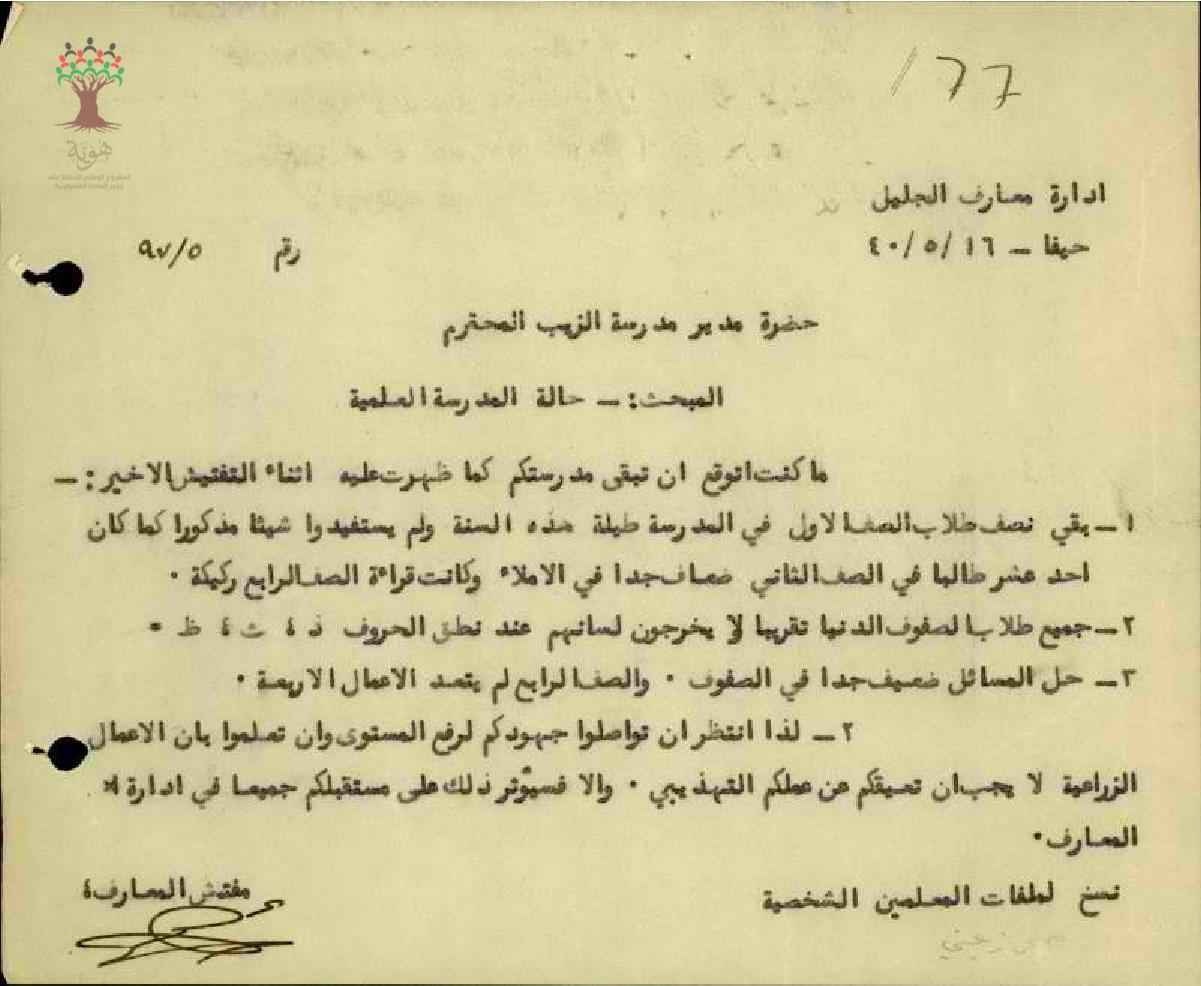 177
هوية
المشروع الوطني للحفاظ على
جذور العائلة الفلسطينية
ادارة معارف الجليل
حيفا ـ ١٦/٥/٤٠
رقم ٩٧/٥
حضرة مدير مدرسة الزيب المحترم
المبحث: ـ حالة المدرسة العلمية
ما كنت اتوقع ان تبقى مدرستكم كما ظهرت عليه اثناء التفتيش الاخير: ـ
١ ـ بقي نصف طلاب الصف الاول في المدرسة طيلة هذه السنة ولم يستفيدوا شيئا مذكورا كما كان
احد عشر طالبا في الصف الثاني ضعاف جدا في الاملاء وكانت قراءة الصف الرابع ركيكة ٠
٢ ـ جميع طلاب الصفوف الدنيا تقريبا لا يخرجون لسانهم عند نطق الحروف ذ ، ث ، ظ ٠
٣ ـ حل المسائل ضعيف جدا في الصفوف ٠ والصف الرابع لم يتعد الاعمال الاربعة ٠
٢ ـ لذا انتظر ان تواصلوا جهودكم لرفع المستوى وان تعلموا بان الاعمال
الزراعية لا يجب ان تعيقكم عن عملكم التهذيبي ٠ والا فسيؤثر ذلك على مستقبلكم جميعا في ادارة
المعارف ٠
نسخ لملفات المعلمين الشخصية
مفتش المعارف،